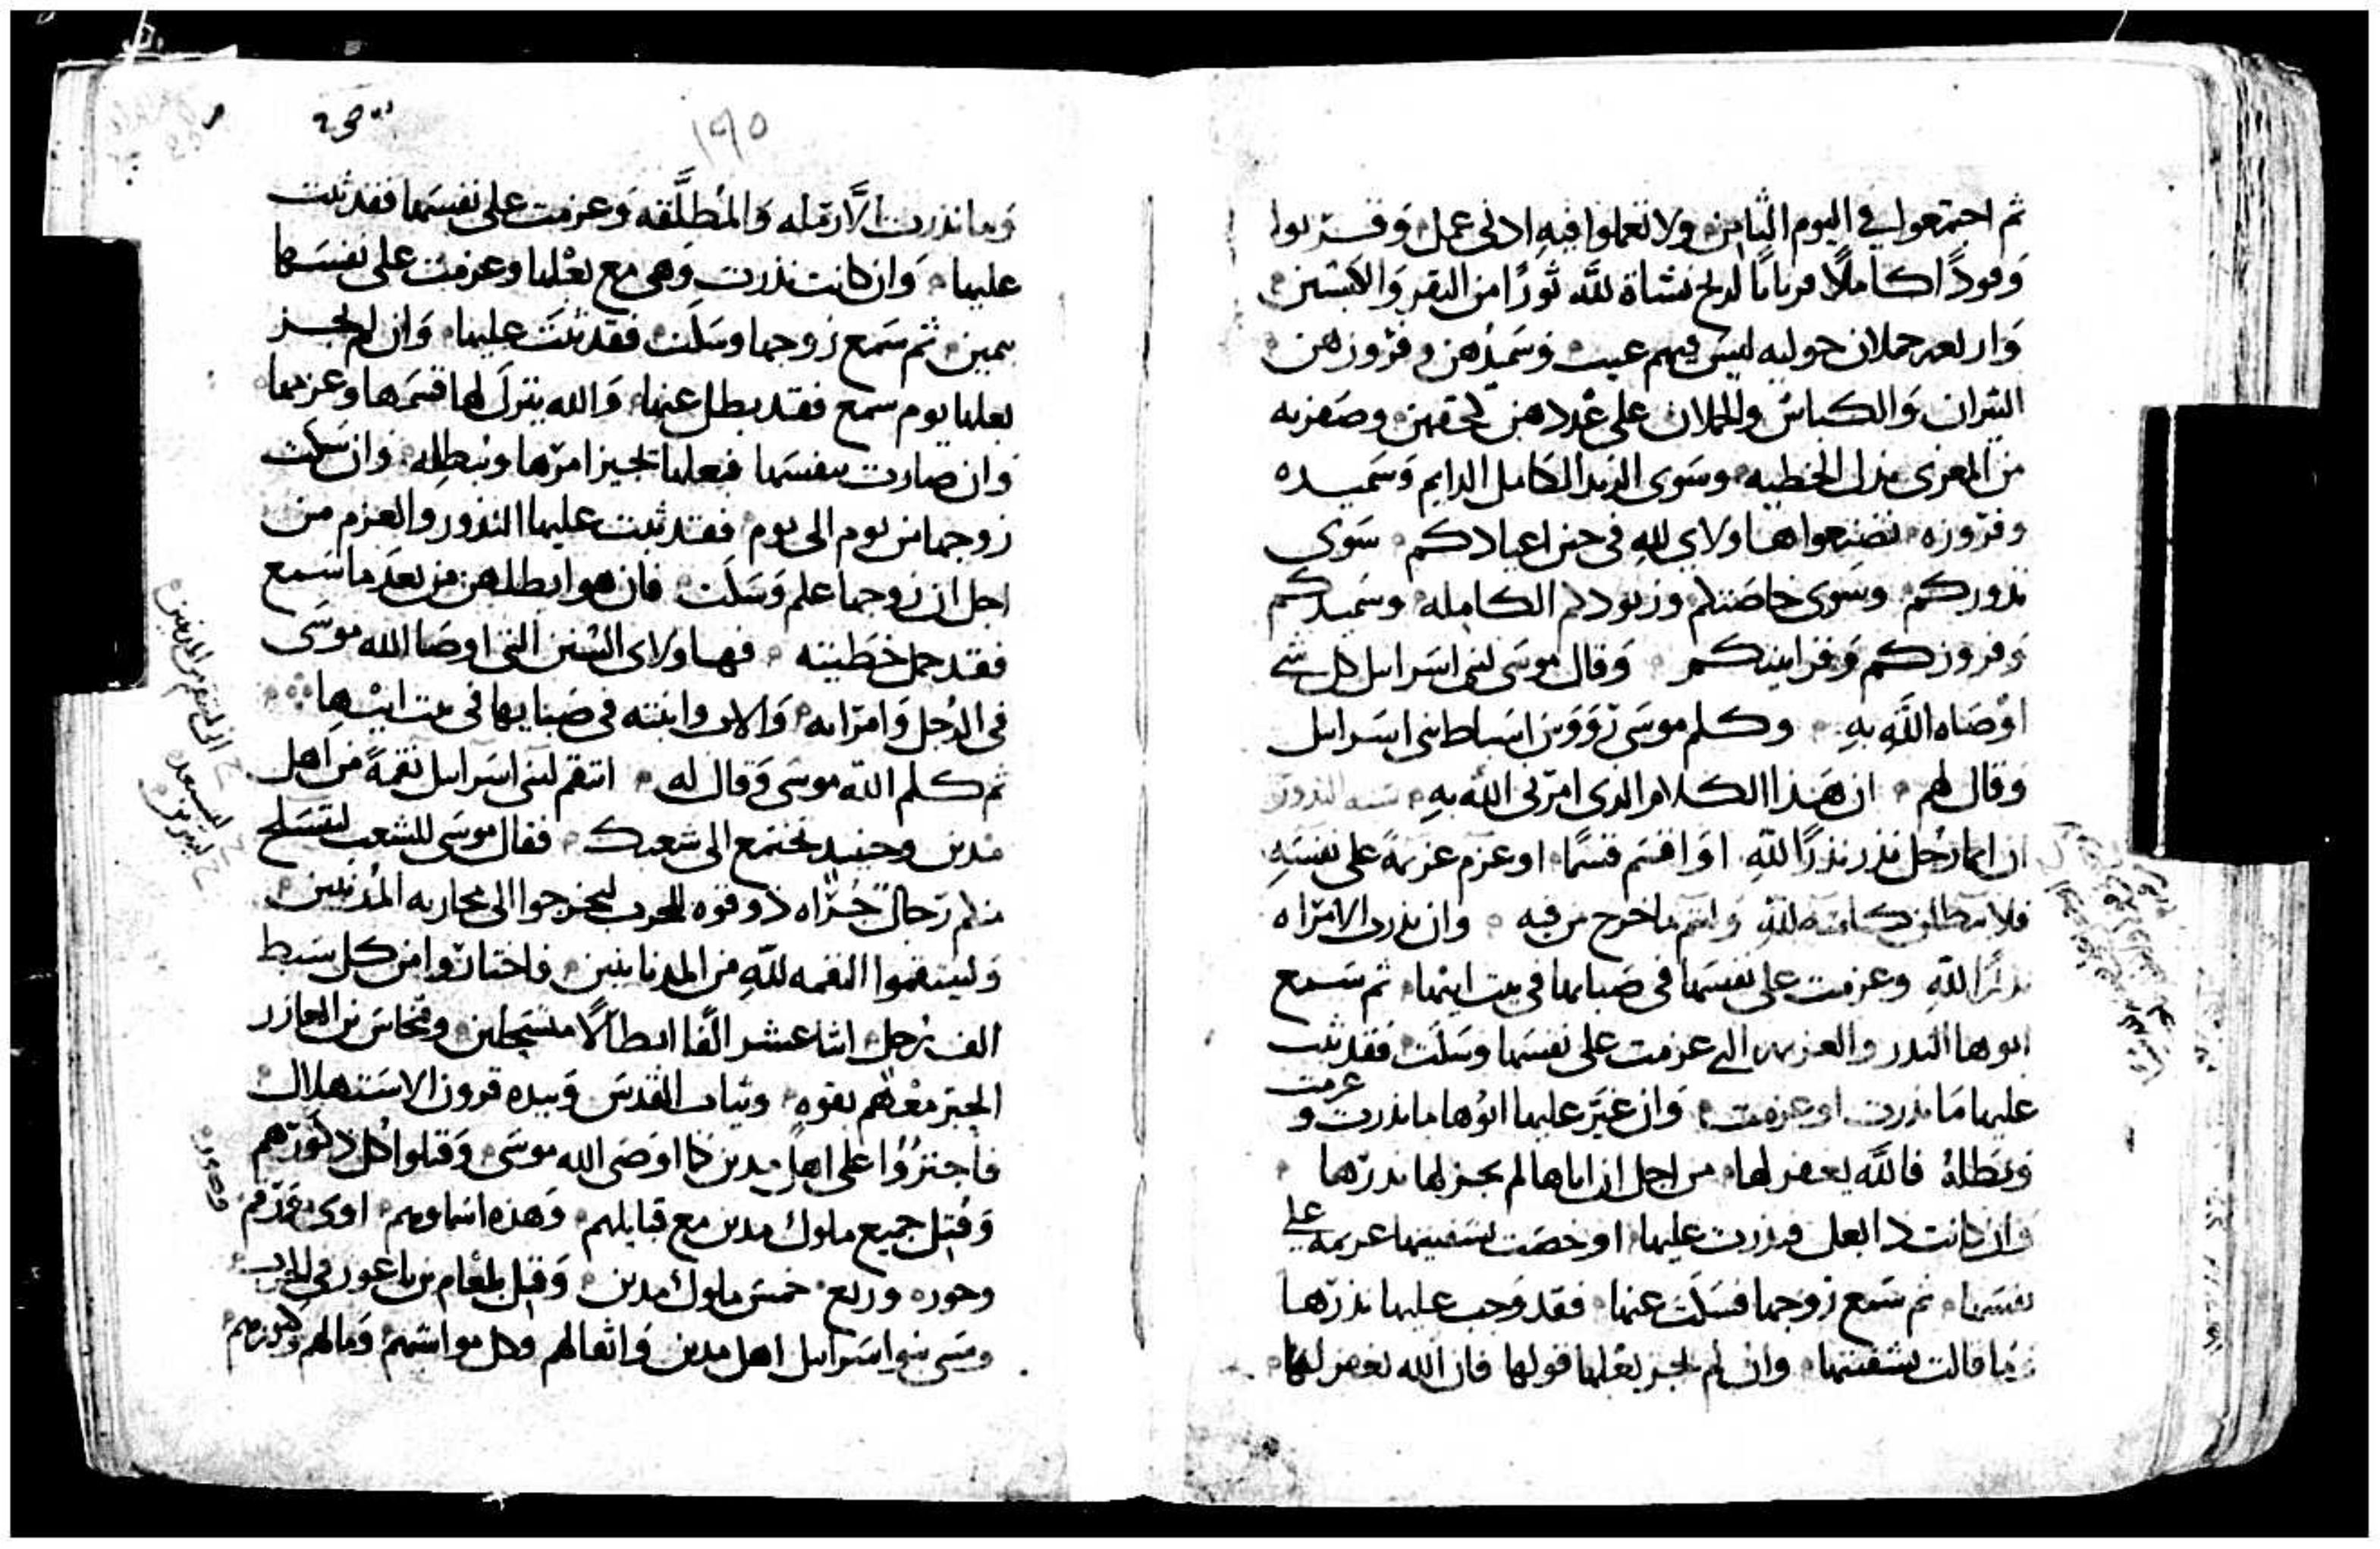 ثم اجتمعوا في اليوم الثامن ولا تعملوا فيه ادنى عمل وقربوا
وقودًا كاملًا قربانًا لريح نشاة لله ثورًا من البقر والكبشين
واربعه حملان حوليه ليس فيهم عيب وسميدهن وفروزهن
الثيران والكباش والحملان على عددهن لحقهن وصفريه
من المعزى بدل الخطيه وسوى الوقيد الكامل الدايم وسميده
وفروزه تصنعوا هاولاي لله في حين اعيادكم سوى
نذوركم وسوى خاصتكم وكاملة وسميدكم
وفروزكم وقرابينكم وقال موسى لبنى اسرايل كل شي
اوصاه الله به وكلم موسى رووس اسباط بنى اسرايل
وقال لهم ان هذا الكلام الذى امرنى الله به سنه النذور
ان ايما رجل نذر نذرًا لله او اقسم قسمًا او عزم عزيمة على نفسه
فلا يبطلن كلمته لله وليتم ما خرج من فيه وان نذرت الامراه
نذرًا لله وعزمت على نفسها في صبايها في بيت ابيها ثم سمع
ابوها النذر والعزيمه التي عزمت على نفسها وسكت فقد ثبت
عليها ما نذرت او عزمت وان غير عليها ابوها ما نذرت و عزمت
ويبطله فالله يغفر لها من اجل ان اباها لم يجز لها نذرها
وان كانت ذا بعل ونذرت عليها او خصت بشفتيها عزيمه على
نفسها ثم سمع زوجها فسكت عنها فقد وجب عليها نذرها
وما قالت بشفتيها وان لم يجز بعلها قولها فان الله يغفر لها
١٩٥
وما نذرت الارمله والمطلقه وعزمت على نفسها فقد ثبت
عليها وان كانت نذرت وهى مع بعلها وعزمت على نفسها
بيمين ثم سمع زوجها وسكت فقد ثبت عليها وان لم يجز
بعلها يوم سمع فقد بطل عنها والله يترك لها قسمها وعزيمها
وان صارت بنفسها فبعلها يجيز امرها ويبطله وان سكت
زوجها من يوم الى يوم فقد ثبت عليها النذور والعزم من
اجل ان زوجها علم وسكت فان هو ابطلهن من بعد ما سمع
فقد حمل خطيته فهاولاى السنن التى اوصا الله موسى
فى الرجل وامراته والاب وابنته فى صبايها فى بيت ابيها
ثم كلم الله موسى وقال له انتقم لبنى اسرايل نقمة من اهل
مدين وحينيد تجتمع الى شعبك فقال موسى للشعب ليتسلح
منكم رجال جراه ذو قوه للحرب ليخرجوا الى محاربه المدنيين
ولينتقموا النقمه لله من المدنانيين فاختاروا من كل سبط
الف رجل اثنا عشر الفا ابطالًا متسلحين وفنحاس بن العازر
الحبر معهم بقوه وثياب القدس وبيده قرون الاستهلال
فاجتروا على اهل مدين كما اوصى الله موسى وقتلوا كل ذكورهم
وقتل جميع ملوك مدين مع قبايلهم وهذه اسماوهم اوى ورقم
وحوره وربع خمس ملوك مدين وقتل بلعام بن باعور فى الحرب
وسبى بنو اسرايل اهل مدين واثقالهم وكل مواشيهم ومالهم
وصور